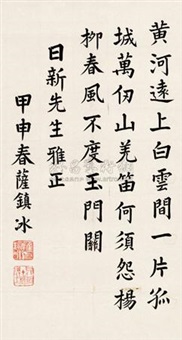 黄河遠上白雲間一片孤
城萬仞山羌笛何須怨楊
柳春風不度玉門關
日新先生雅正
甲申春薩鎮冰